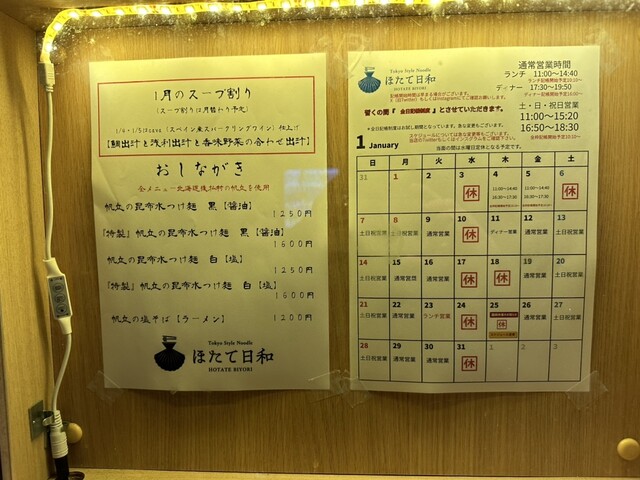 1月のスープ割り
(スープ割りは月替わり予定)
1/4・1/5はcava (スペイン産スパークリングワイン) 仕上げ
【鯛出汁と浅利出汁と香味野菜の合わせ出汁】
おしながき
全メニュー北海道猿払村の帆立を使用
帆立の昆布水つけ麺 黒【醤油】
1250円
『特製』帆立の昆布水つけ麺 黒【醤油】
1600円
帆立の昆布水つけ麺 白【塩】
1250円
『特製』帆立の昆布水つけ麺 白【塩】
1600円
帆立の塩そば【ラーメン】 1200円
Tokyo Style Noodle
ほたて日和
HOTATE BIYORI
Tokyo Style Noodle
ほたて日和
HOTATE BIYORI
通常営業時間
ランチ 11:00〜14:40
ランチ記帳開始予定10:10〜
ディナー 17:30〜19:50
ディナー記帳開始予定16:00〜
土・日・祝営業
11:00〜15:20
16:50〜18:30
暫くの間『全日記帳制度』とさせていただきます。
1 January
当面の間は水曜日定休となる予定です。
日 月 火 水 木 金 土
31 1 2 3 4 5 6
休 11:00〜14:40 11:00〜14:40 休
7 8 9 10 11 12 13
土日祝営業 土日祝営業 通常営業 休 ディナー営業 通常営業 土日祝営業
14 15 16 17 18 19 20
土日祝営業 通常営業 通常営業 休 休 通常営業 土日祝営業
21 22 23 24 25 26 27
土日祝営業 通常営業 ランチ営業 休 休 通常営業 土日祝営業
28 29 30 31 1 2 3
土日祝営業 通常営業 通常営業 休